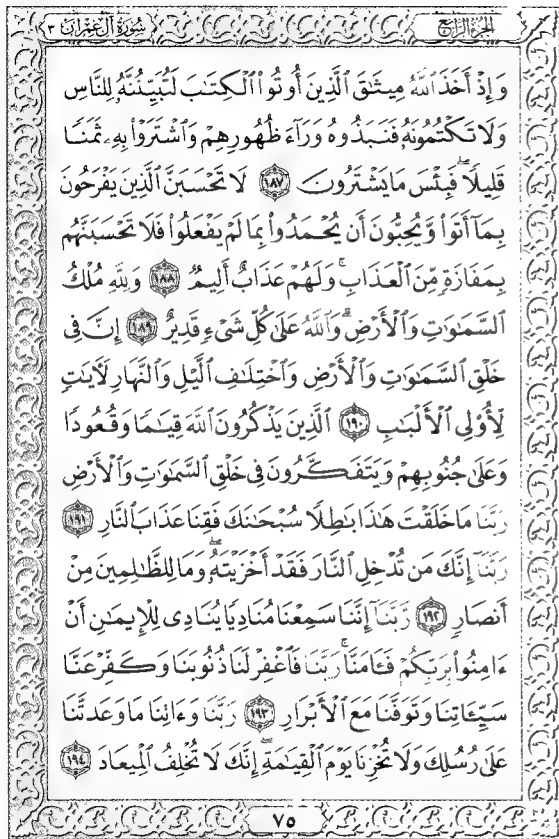 الجزء الرابع
سورة آل عمران ٣
وَإِذْ أَخَذَ ٱللَّهُ مِيثَٰقَ ٱلَّذِينَ أُوتُوا۟ ٱلْكِتَٰبَ لَتُبَيِّنُنَّهُۥ لِلنَّاسِ
وَلَا تَكْتُمُونَهُۥ فَنَبَذُوهُ وَرَآءَ ظُهُورِهِمْ وَٱشْتَرَوْا۟ بِهِۦ ثَمَنًا
قَلِيلًا ۖ فَبِئْسَ مَا يَشْتَرُونَ ١٨٧ لَا تَحْسَبَنَّ ٱلَّذِينَ يَفْرَحُونَ
بِمَآ أَتَوا۟ وَّيُحِبُّونَ أَن يُحْمَدُوا۟ بِمَا لَمْ يَفْعَلُوا۟ فَلَا تَحْسَبَنَّهُم
بِمَفَازَةٍ مِّنَ ٱلْعَذَابِ ۖ وَلَهُمْ عَذَابٌ أَلِيمٌ ١٨٨ وَلِلَّهِ مُلْكُ
ٱلسَّمَٰوَٰتِ وَٱلْأَرْضِ ۗ وَٱللَّهُ عَلَىٰ كُلِّ شَىْءٍ قَدِيرٌ ١٨٩ إِنَّ فِى
خَلْقِ ٱلسَّمَٰوَٰتِ وَٱلْأَرْضِ وَٱخْتِلَٰفِ ٱلَّيْلِ وَٱلنَّهَارِ لَءَايَٰتٍ
لِّأُو۟لِى ٱلْأَلْبَٰبِ ١٩٠ ٱلَّذِينَ يَذْكُرُونَ ٱللَّهَ قِيَٰمًا وَقُعُودًا
وَعَلَىٰ جُنُوبِهِمْ وَيَتَفَكَّرُونَ فِى خَلْقِ ٱلسَّمَٰوَٰتِ وَٱلْأَرْضِ
رَبَّنَا مَا خَلَقْتَ هَٰذَا بَٰطِلًا سُبْحَٰنَكَ فَقِنَا عَذَابَ ٱلنَّارِ ١٩١
رَبَّنَآ إِنَّكَ مَن تُدْخِلِ ٱلنَّارَ فَقَدْ أَخْزَيْتَهُۥ ۖ وَمَا لِلظَّٰلِمِينَ مِنْ
أَنصَارٍ ١٩٢ رَّبَّنَآ إِنَّنَا سَمِعْنَا مُنَادِيًا يُنَادِى لِلْإِيمَٰنِ أَنْ
ءَامِنُوا۟ بِرَبِّكُمْ فَـَٔامَنَّا ۚ رَبَّنَا فَٱغْفِرْ لَنَا ذُنُوبَنَا وَكَفِّرْ عَنَّا
سَيِّـَٔاتِنَا وَتَوَفَّنَا مَعَ ٱلْأَبْرَارِ ١٩٣ رَبَّنَا وَءَاتِنَا مَا وَعَدتَّنَا
عَلَىٰ رُسُلِكَ وَلَا تُخْزِنَا يَوْمَ ٱلْقِيَٰمَةِ ۗ إِنَّكَ لَا تُخْلِفُ ٱلْمِيعَادَ ١٩٤
٧٥